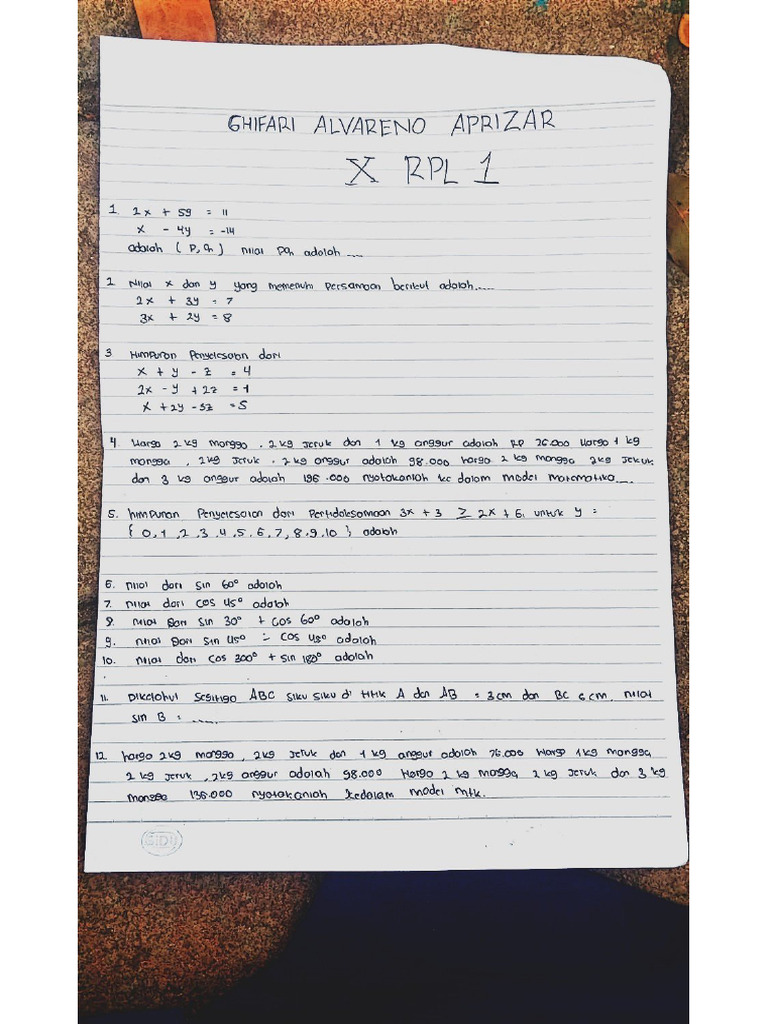 GHIFARI ALVARENO APRIZAR
X RPL 1
1. 2x + 5y = 11
x - 4y = -14
adalah ( P, q ) nilai Pq adalah ....
2. Nilai x dan y yang memenuhi persamaan berikut adalah.....
2x + 3y = 7
3x + 2y = 8
3. Himpunan Penyelesaian dari
x + y - z = 4
2x - y + 2z = 1
x + 2y - 3z = 5
4. Harga 2 kg mangga , 2 kg jeruk dan 1 kg anggur adalah RP 76.000 Harga 1 kg
mangga , 2 kg Jeruk , 2 kg anggur adalah 98.000 harga 2 kg mangga 2kg Jeruk
dan 3 kg anggur adalah 136.000 nyatakanlah ke dalam model matematika....
5. himpunan Penyelesaian dari Pertidaksamaan 3x + 3 ≥ 2x + 6, untuk y =
{ 0, 1 , 2 , 3 , 4 , 5 , 6 , 7 , 8 , 9 , 10 } adalah
6. nilai dari sin 60° adalah
7. nilai dari cos 45° adalah
8. nilai Dari sin 30° + cos 60° adalah
9. nilai Dari sin 45° - cos 45° adalah
10. nilai dari cos 300° + sin 180° adalah
11. Diketahui segitiga ABC siku siku di titik A dan AB = 3 cm dan BC 6 cm. nilai
sin B = .....
12. harga 2kg mangga , 2kg jeruk dan 1 kg anggur adalah 76.000 Harga 1kg mangga
2 kg jeruk , 2kg anggur adalah 98.000 Harga 2 kg magga 2 kg Jeruk dan 3 kg
mangga 136.000 nyatakanlah kedalam model mtk.
SIDU